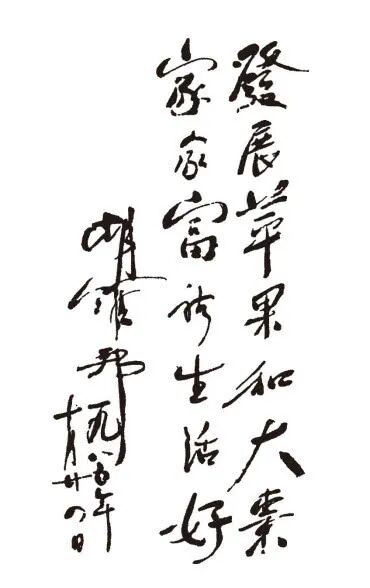 發展苹果和大棗
家家富裕生活好
胡耀邦 一九八五年
十月廿四日